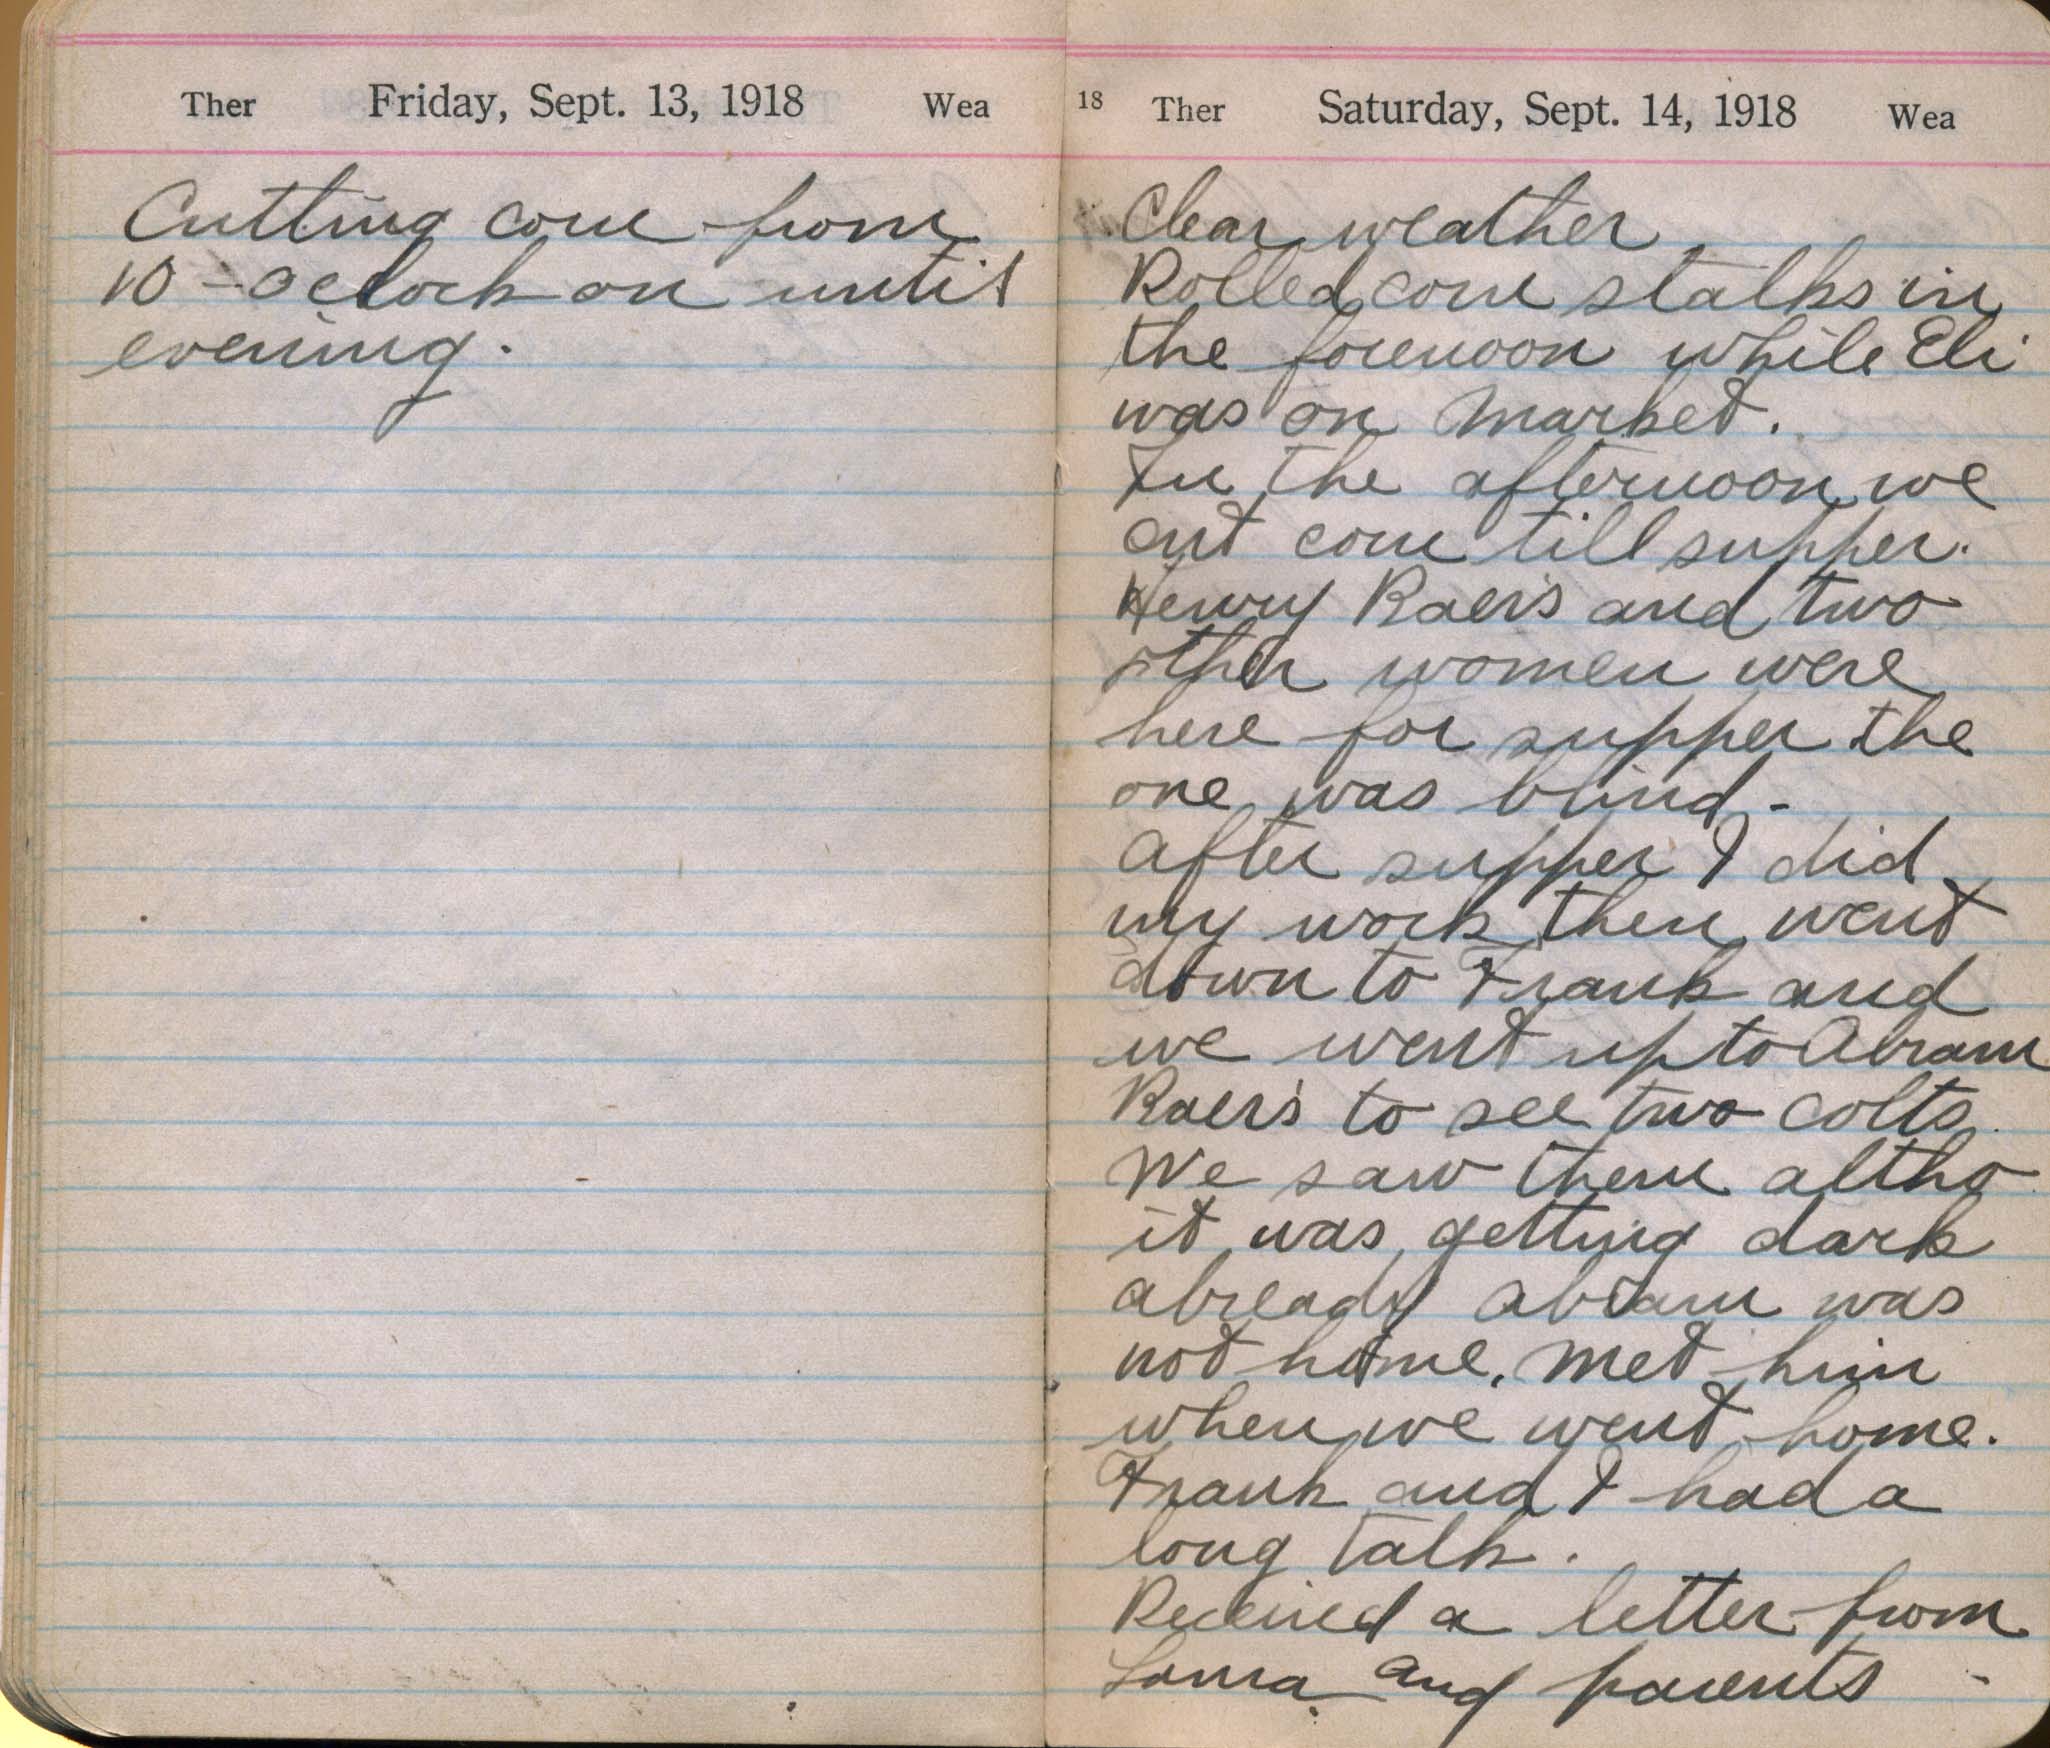 Ther Friday, Sept. 13, 1918 Wea
Cutting corn from
10-oclock on until
evening.
18 Ther Saturday, Sept. 14, 1918 Wea
Clear weather
Rolled corn stalks in
the forenoon while Eli
was on market.
In the afternoon we
cut corn till supper.
Henry Baer's and two
other women were
here for supper the
one was blind -
After supper I did
my work then went
down to Frank and
we went up to Abram
Baer's to see two colts.
We saw them altho
it was getting dark
already Abram was
not home. Met him
when we went home.
Frank and I had a
long talk.
Received a letter from
and parents -